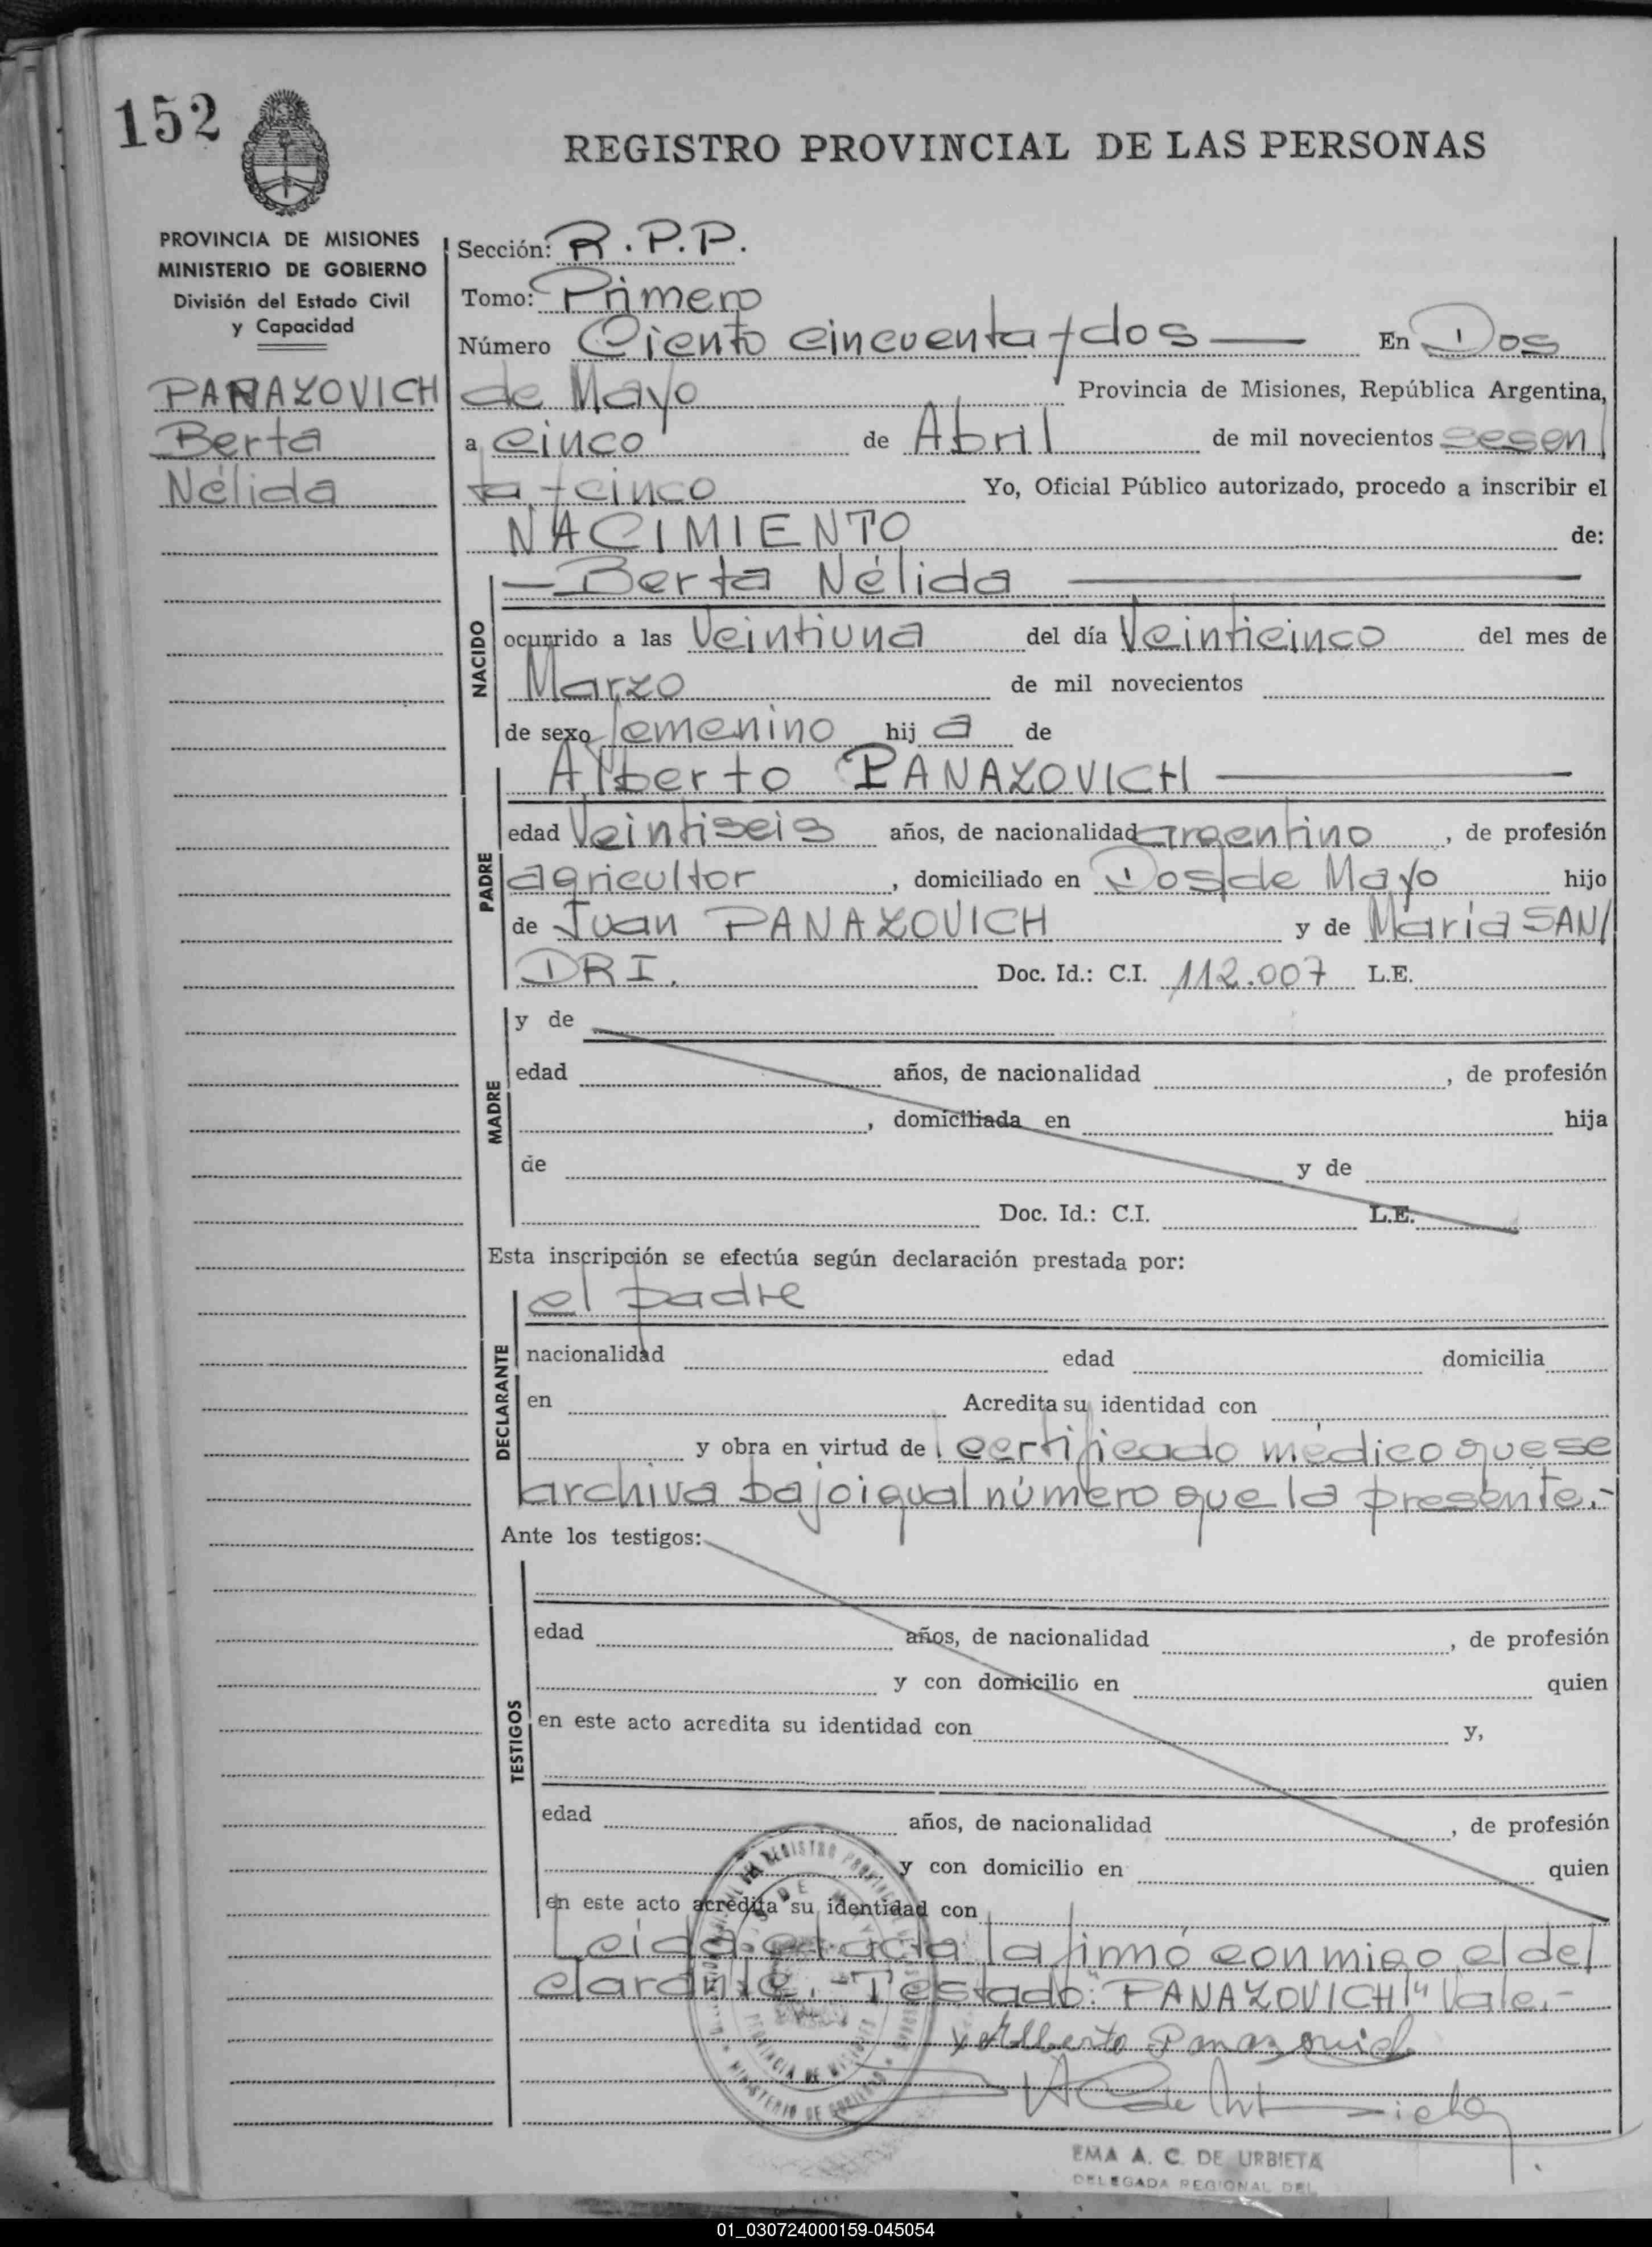 152
REGISTRO PROVINCIAL DE LAS PERSONAS
PROVINCIA DE MISIONES
MINISTERIO DE GOBIERNO
División del Estado Civil
y Capacidad
PANAZOVICH
Berta
Nélida
Sección: R.P.P.
Tomo: Primero
Número Ciento cincuenta y dos — En Dos
de Mayo Provincia de Misiones, República Argentina,
a cinco de Abril de mil novecientos sesen/
ta y cinco Yo, Oficial Público autorizado, procedo a inscribir el
NACIMIENTO de:
NACIDO
— Berta Nélida —
ocurrido a las Veintiuna del día Veinticinco del mes de
Marzo de mil novecientos
de sexo femenino hija de
PADRE
Alberto PANAZOVICH —
edad Veintiseis años, de nacionalidad argentino, de profesión
agricultor, domiciliado en Dos de Mayo hijo
de Juan PANAZOVICH y de María SAN/
DRI. Doc. Id.: C.I. 112.007 L.E.
MADRE
y de
edad años, de nacionalidad , de profesión
, domiciliada en hija
de y de
Doc. Id.: C.I. L.E.
Esta inscripción se efectúa según declaración prestada por:
DECLARANTE
el padre
nacionalidad edad domicilia
en Acredita su identidad con
y obra en virtud de certificado médico que se
archiva bajo igual número que la presente.-
Ante los testigos:
TESTIGOS
edad años, de nacionalidad , de profesión
y con domicilio en quien
en este acto acredita su identidad con y,
edad años, de nacionalidad , de profesión
y con domicilio en quien
en este acto acredita su identidad con
Leída el acta la firmó conmigo el de/
clarante.- Testado: "PANAZOVICH" Vale.-
Alberto Panazovich
EMA A. C. DE URBIETA
DELEGADA REGIONAL DEL
01_030724000159-045054